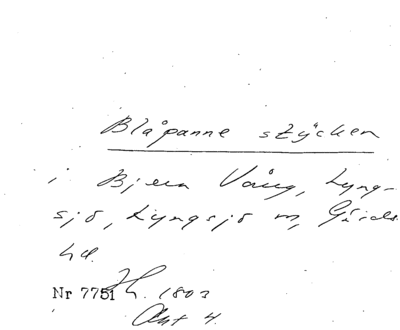 Blåpanne stycken
i Bjern Vång, Lyng-
sjö, Lyngsjö sn, Gärds
hd.
Nr 7751 Jh. 1803
Akt 4.